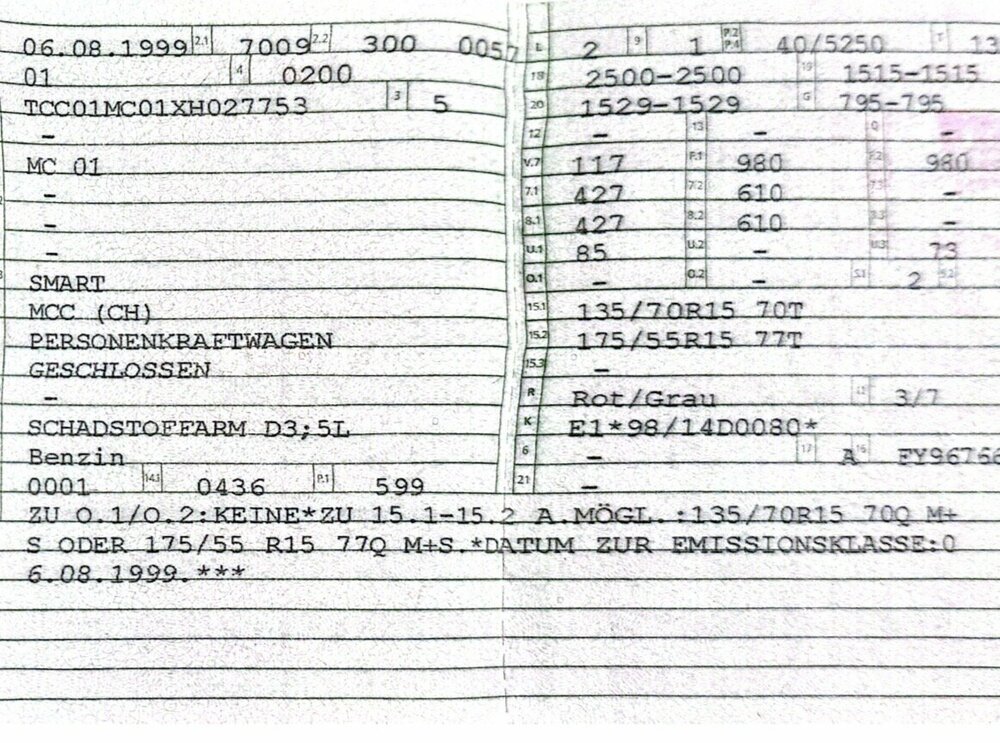 06.08.1999 2.1 7009 2.2 300 0057
01 4 0200
TCC01MC01XH027753 3 5
-
MC 01
-
-
-
SMART
MCC (CH)
PERSONENKRAFTWAGEN
GESCHLOSSEN
-
SCHADSTOFFARM D3;5L
Benzin
0001 14.1 0436 P.1 599
L 2 9 1 P.2 P.4 40/5250 T 13
18 2500-2500 19 1515-1515
20 1529-1529 G 795-795
12 - 13 - Q -
V.7 117 F.1 980 F.2 980
7.1 427 7.2 610 7.3 -
8.1 427 8.2 610 8.3 -
U.1 85 U.2 - U.3 73
O.1 - O.2 - S.1 2 S.2
15.1 135/70R15 70T
15.2 175/55R15 77T
15.3 -
R Rot/Grau 11 3/7
K E1*98/14D0080*
6 - 17 A 16 FY96766
21 -
ZU O.1/O.2:KEINE*ZU 15.1-15.2 A.MÖGL.:135/70R15 70Q M+
S ODER 175/55 R15 77Q M+S.*DATUM ZUR EMISSIONSKLASSE:0
6.08.1999.***